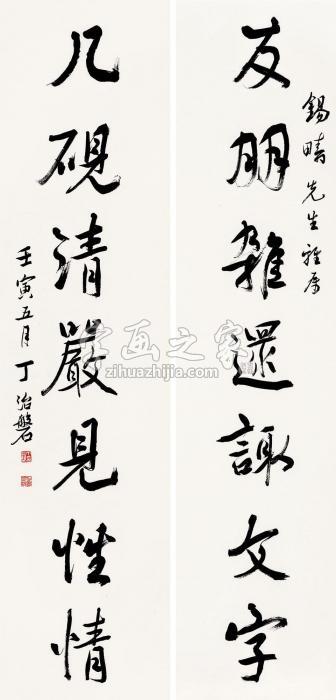 錫疇先生雅屬
友朋雜遝諏文字
几硯清嚴見性情
壬寅五月丁治磐
字画之家
zihuazhijia.com